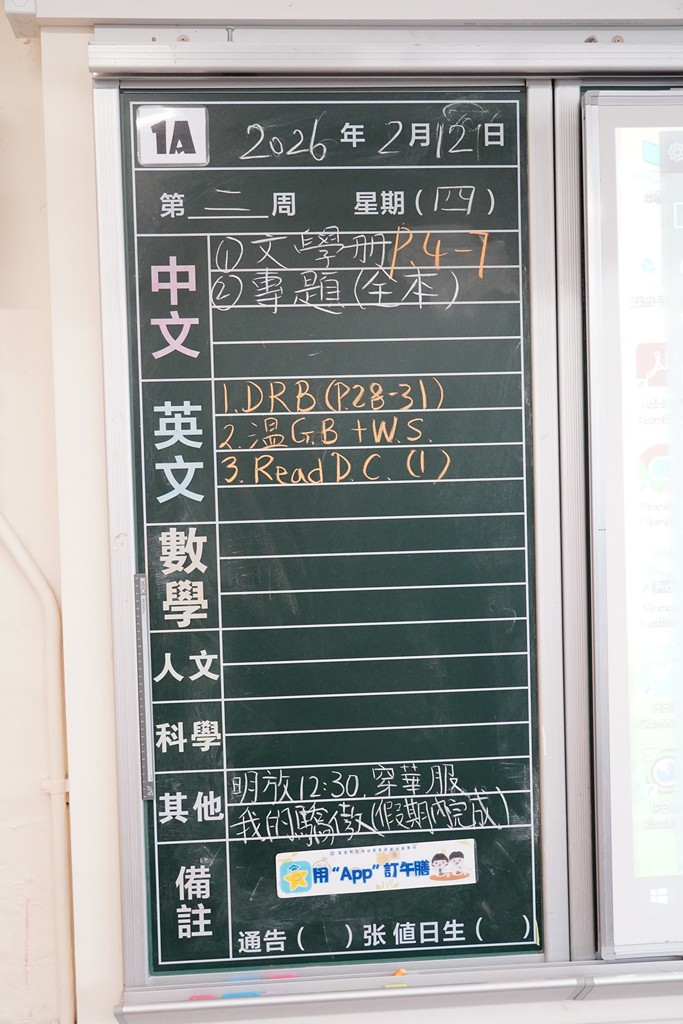 1A 2026年2月12日
第二周 星期(四)
中文
①文學册P.4-7
②專題(全本)
英文
1.DRB(P.28-31)
2.溫G.B+W.S.
3.Read D.C.(1)
數學
人文
科學
其他
明放12:30,穿華服
我的驕傲(假期內完成)
備註
用“App”訂午膳
通告( )张 值日生( )